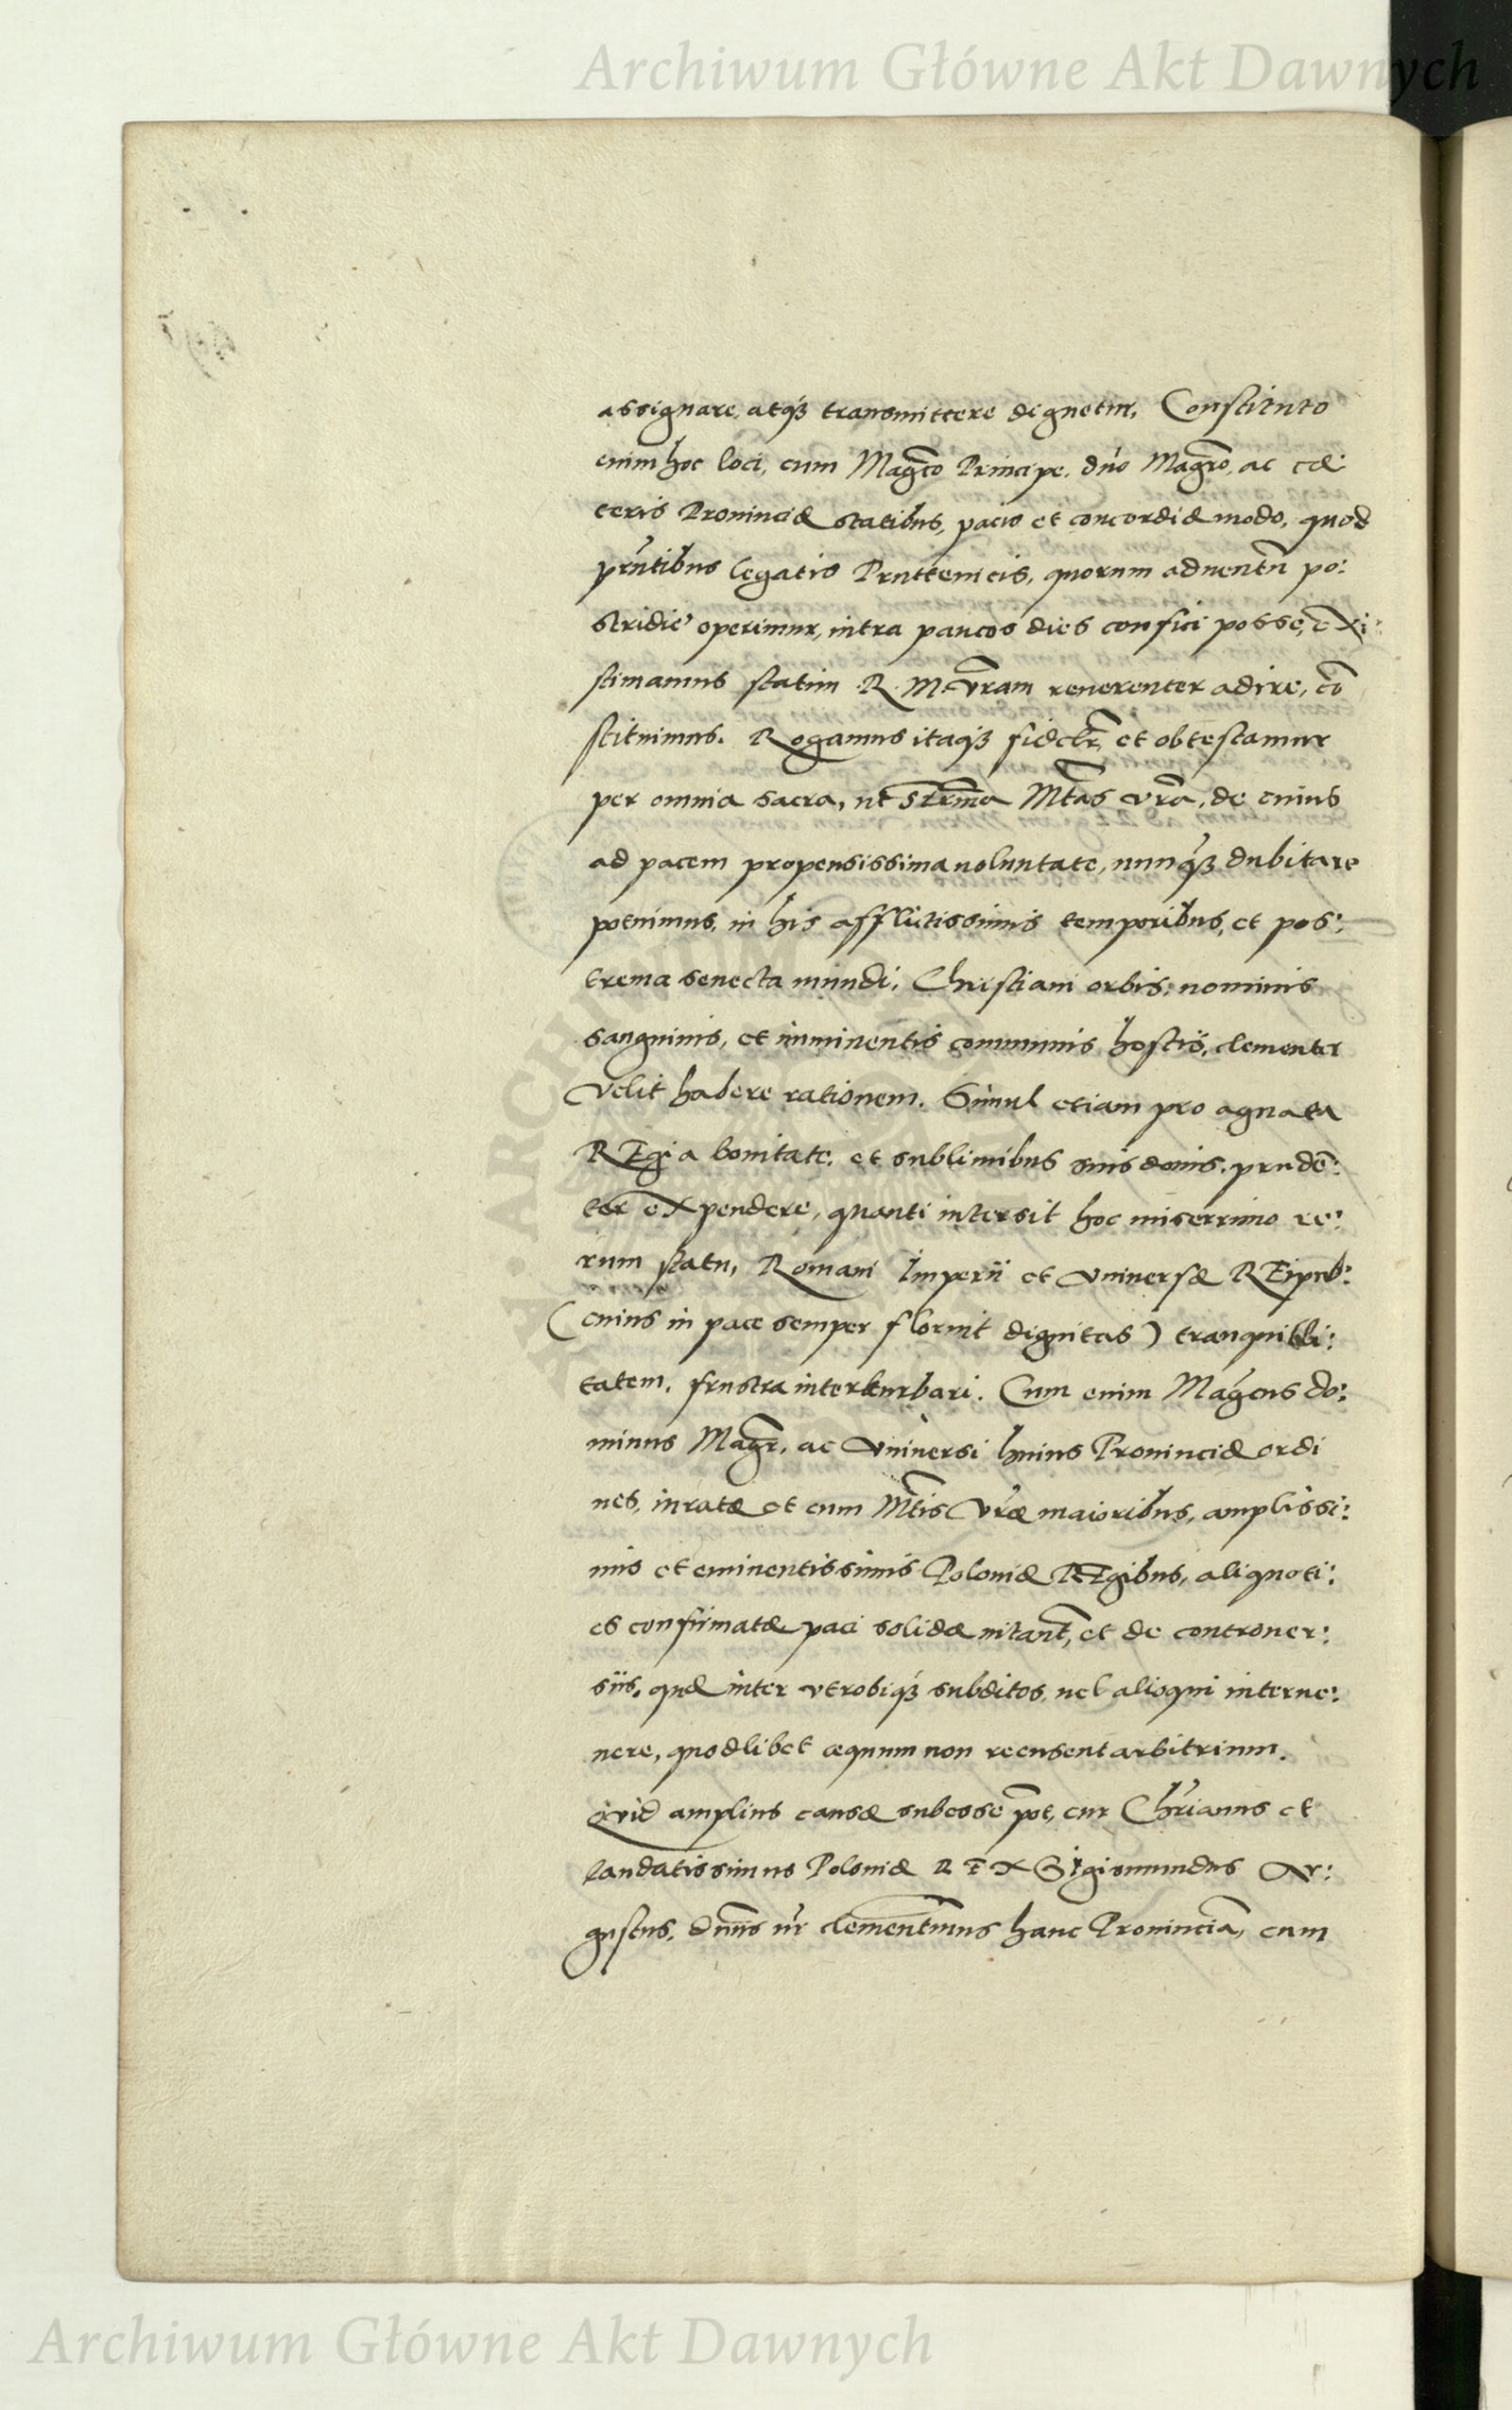 Archiwum Główne Akt Dawnych
assignare, atq́ꝫ transmittere dignetur. Constituto
enim hoc loci, cum Magc̃o Principe, dño Magrõ, ac cæ
teris Prouinciæ statibus, pacis et concordiæ modo, quod
pr̃ntibus legatis Pruttenicis, quorum aduentũ po:
stridie operimur, intra paucos dies confici posse, exi:
stimamus statim R. M. vr̃am reuerenter adire, cõ
stituimus. Rogamus itaq́ꝫ fidelr̃, et obtestamur
per omnia sacra, ut Sr̃ma Mt̃as vr̃a, de cuius
ad pacem propensissima uoluntate, nunq́ꝫ dubitare
potuimus, in his afflictissimis temporibus, et pos:
trema senecta mundi, Christiani orbis, nominis
sanguinis, et imminentis communis hostis, clementer
velit habere rationem. Simul etiam pro agnata
REgia bonitate, et sublimibus suis donis, prudẽ:
ter expendere, quanti intersit hoc miserrimo re:
rum statu, Romani Imperii et vniuersæ REipub:
(cuius in pace semper floruit dignitas) tranquilli:
tatem, frustra interturbari. Cum enim Mag̃cus do:
minus Magr̃, ac vniuersi huius Prouinciæ ordi
nes, iuratæ et cum Mt̃is vr̃æ maioribus, amplissi:
mis et eminentissimis Poloniæ REgibus, aliquoti:
es confirmatæ paci solidæ nitant̃, et de controuer:
siis, quæ inter vtrobiq́ꝫ subditos, uel alioqui interue:
nere, quodlibet æquum non recusent arbitrium.
Qvid amplius causæ subesse põt, cur Chr̃ianus et
laudatissimus Poloniæ REX Sigismundus Av:
gustus, dñus nr̃ clementm̃us hanc Prouinciã, cum
Archiwum Główne Akt Dawnych